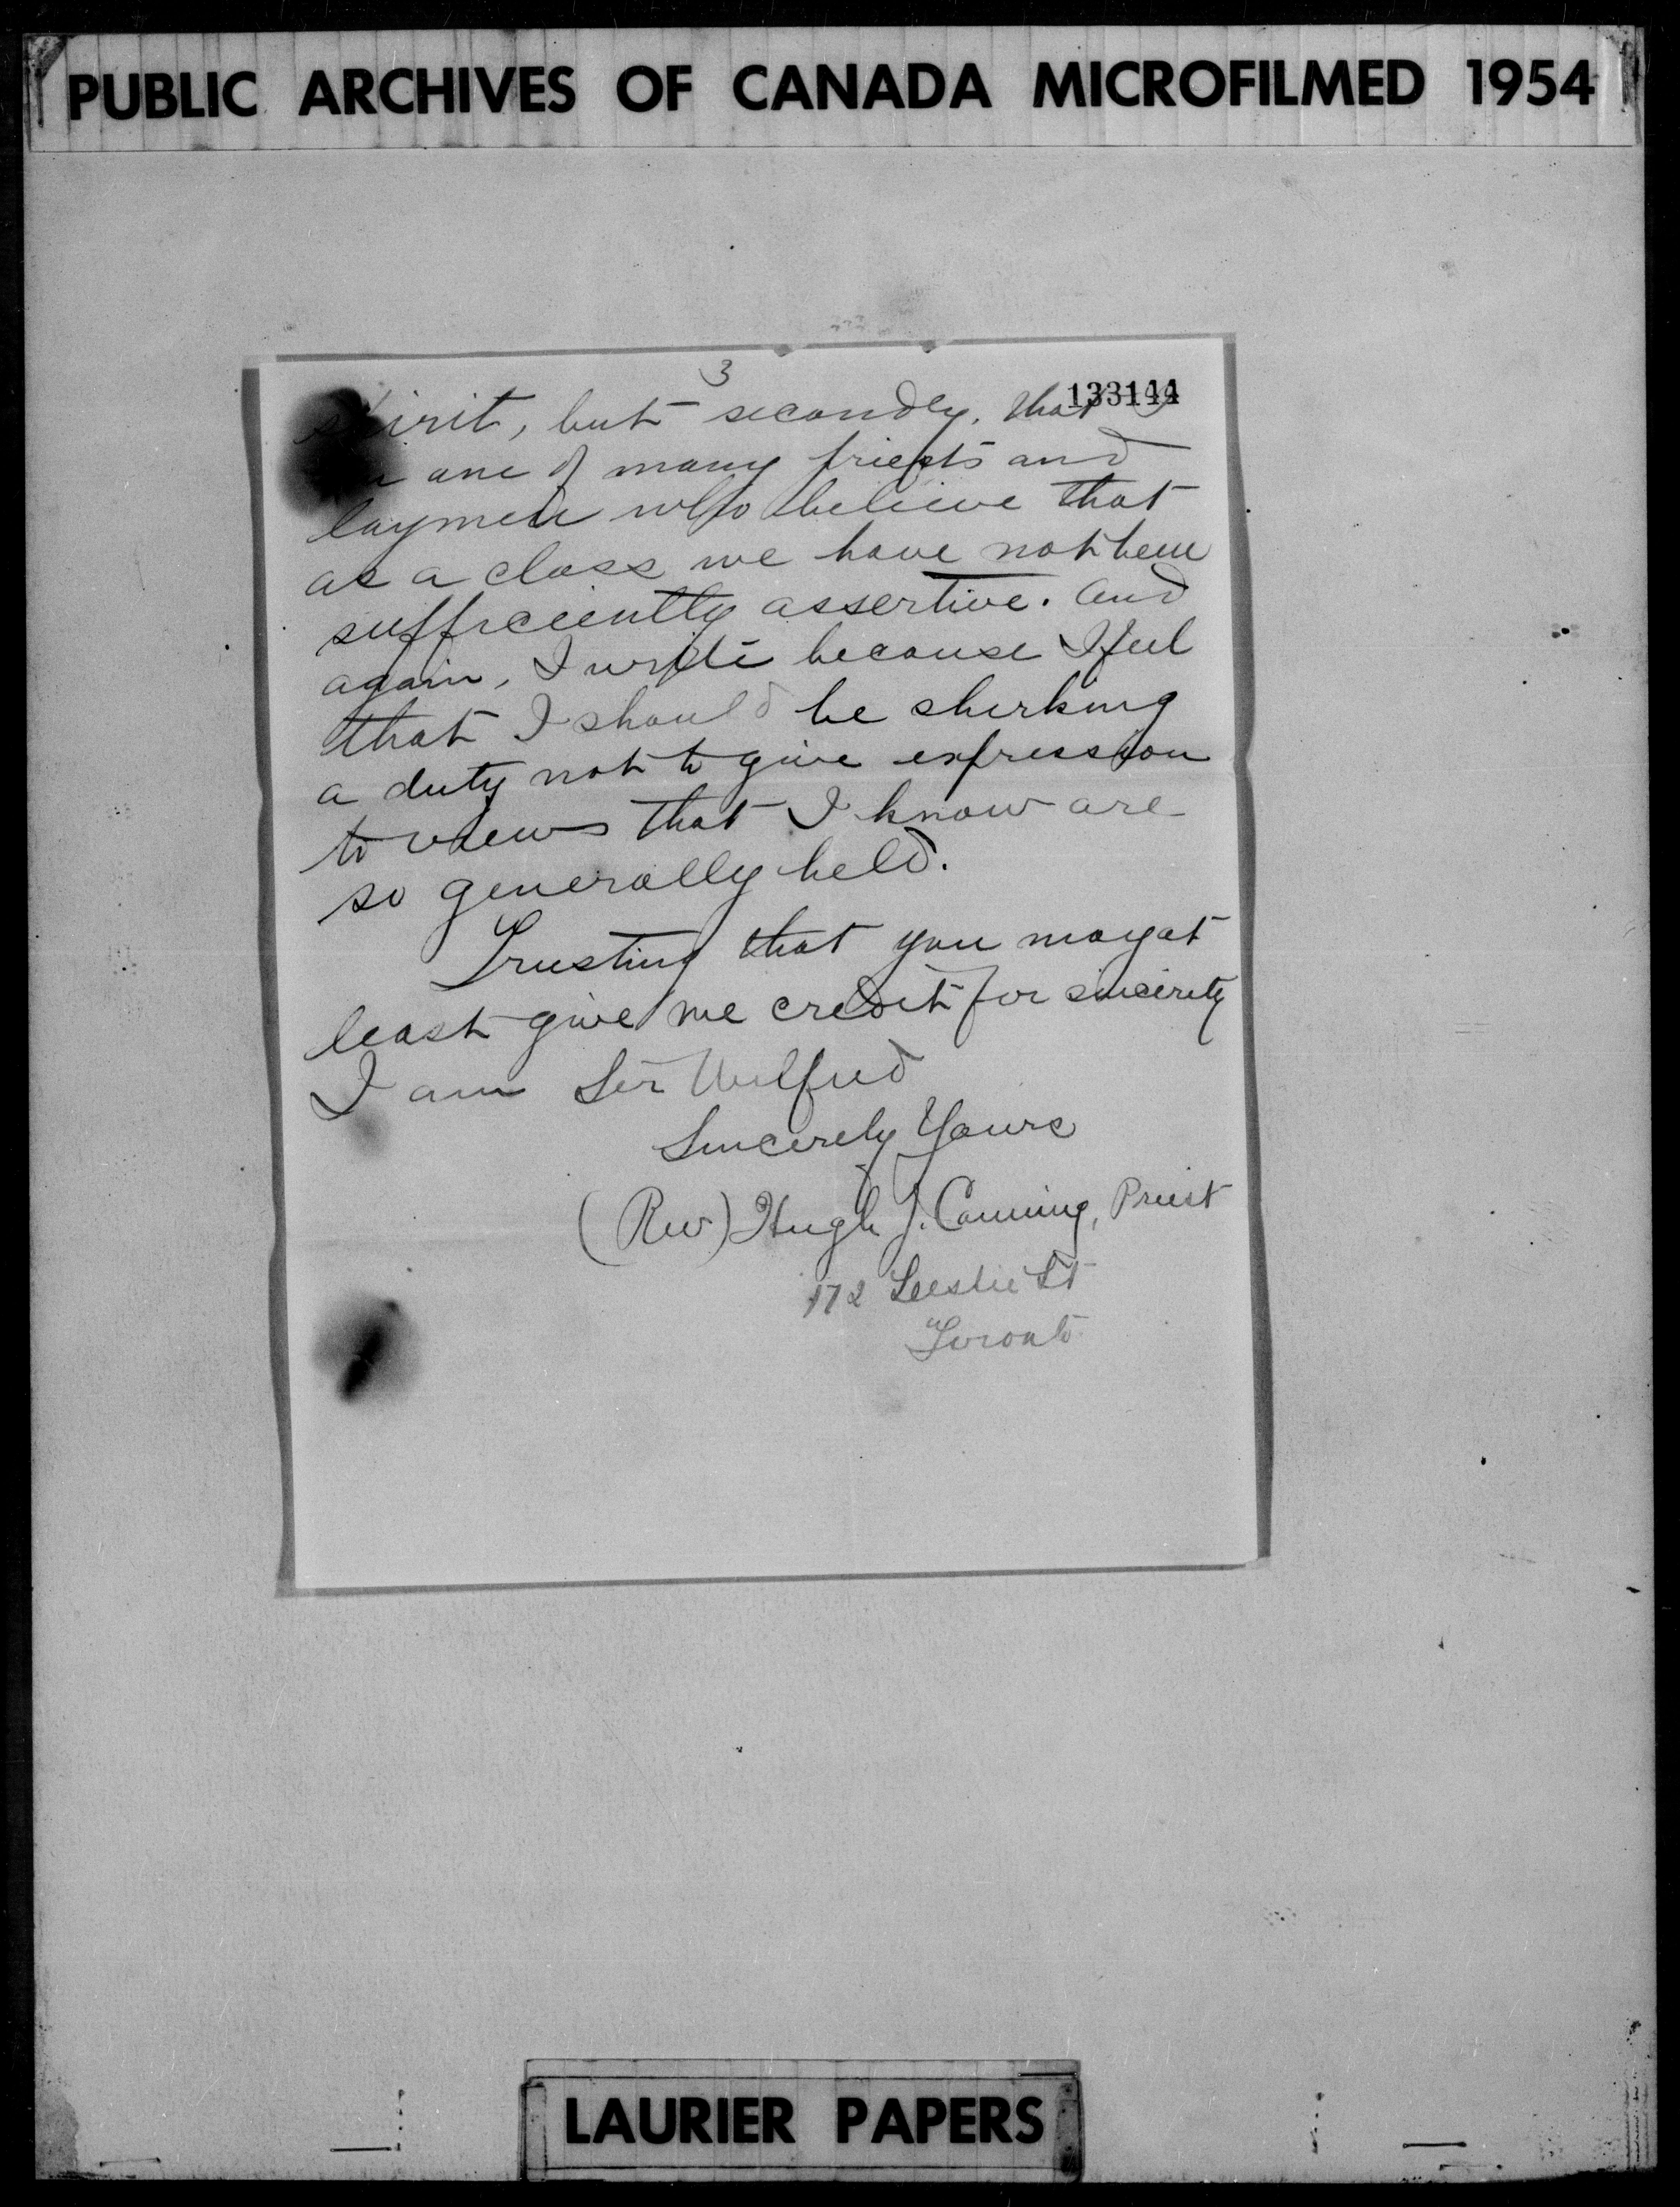 PUBLIC ARCHIVES OF CANADA MICROFILMED 1954
3
133144
spirit, but secondly, that I
one of many priests and
laymen who believe that
as a class we have not been
sufficiently assertive. And
again, I write because I feel
that I should be shirking
a duty not to give expression
to views that I know are
so generally held.
Trusting that you may at
least give me credit for sincerity
I am Sir Wilfrid
Sincerely Yours
(Rev) Hugh J. Canning, Priest
172 Leslie St
Toronto
LAURIER PAPERS